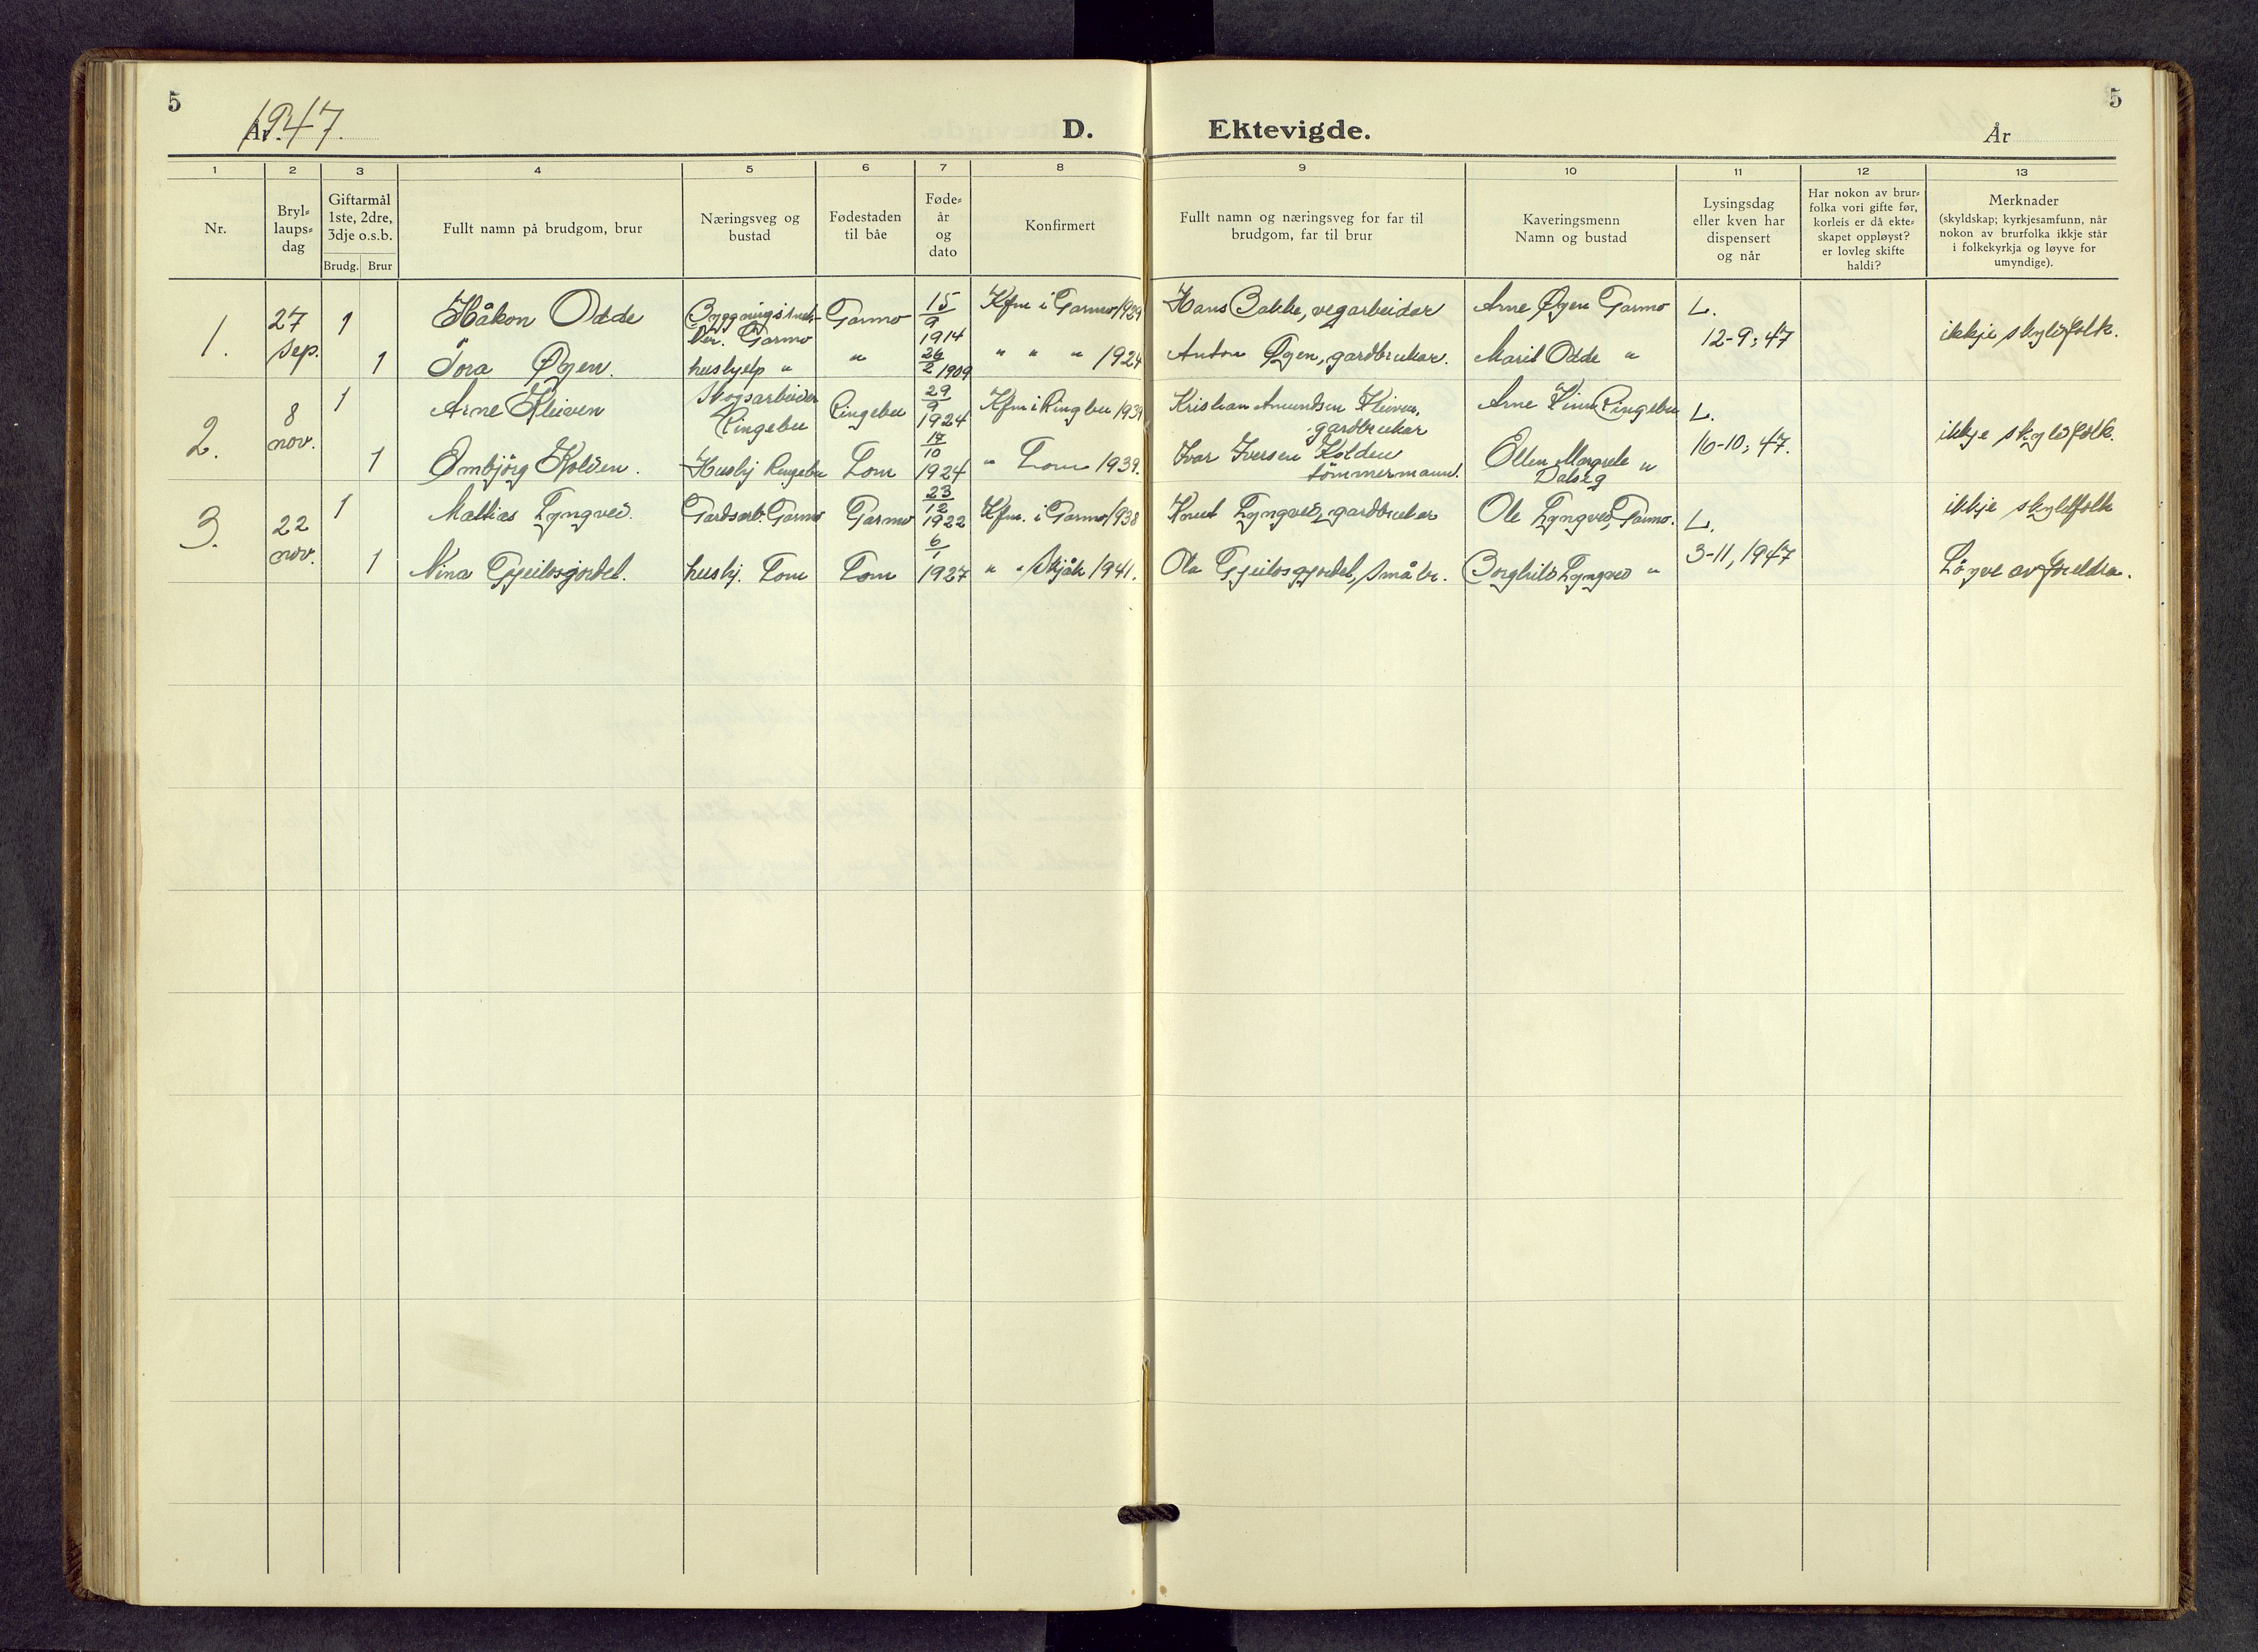 5
År 1947.
D. Ektevigde.
År
5
1 2 3 4 5 6 7 8 9 10 11 12 13
Nr.
Bryl=
laups=
dag
Giftarmål
1ste, 2dre,
3dje o.s.b.
Brudg. Brur
Fullt namn på brudgom, brur
Næringsveg og
bustad
Fødestaden
til båe
Føde=
år
og
dato
Konfirmert
Fullt namn og næringsveg for far til
brudgom, far til brur
Kaveringsmenn
Namn og bustad
Lysingsdag
eller kven har
dispensert
og når
Har nokon av brur=
folka vori gifte før,
korleis er då ekte=
skapet oppløyst?
er lovleg skifte
haldi?
Merknader
(skyldskap; kyrkjesamfunn, når
nokon av brurfolka ikkje står
i folkekyrkja og løyve for
umyndige).
1.
27
sep.
1
Håkon Odde
Garmo
Garmo
15/9
1914
Kfm i Garmo 1929
Hans Bakke, vegarbeidar
Arne Øyen Garmo
L.
12-9-47
ikkje skyldfolk.
1
Tora Øyen.
hushjelp "
"
26/2 1909
" " " 1924
Anton Øyen, gardbrukar.
Marit Odde "
2.
8
nov.
1
Arne Kleiven
Skogsarbeider
Ringebu
Ringebu
29/9
1924
Kfm i Ringebu 1939
Kristian Amundsen Kleiven,
gardbrukar
Arne Ringebu
L.
16-10-47.
ikkje skyldfolk.
1
Ombjörg Kolden.
Hushj Ringebu
Lom
10
1924
" Lom 1939.
Ivar Iversen Kolden
tömmermann.
Ellen Margrete "
Dalseg
3.
22
nov.
1
Mathias Lyngved.
Gardsarb. Garmo
Garmo
23/12
1922
Kfm. i Garmo 1938
Knut Lyngved, gardbrukar
Ole Lyngved, Garmo.
L.
3-11, 1947
ikkje skyldfolk
1
Nina Gjeilosgjordet.
hushj. Lom
Lom
6/1
1927
" " Skjåk 1941.
Ola Gjeilosgjordet, småbr.
Borghild Lyngved "
Løyve av foreldra.